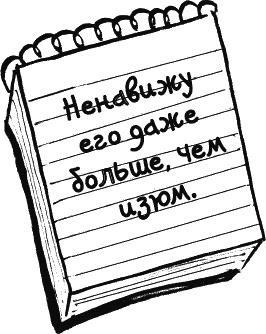 Ненавижу
его даже
больше, чем
изюм.